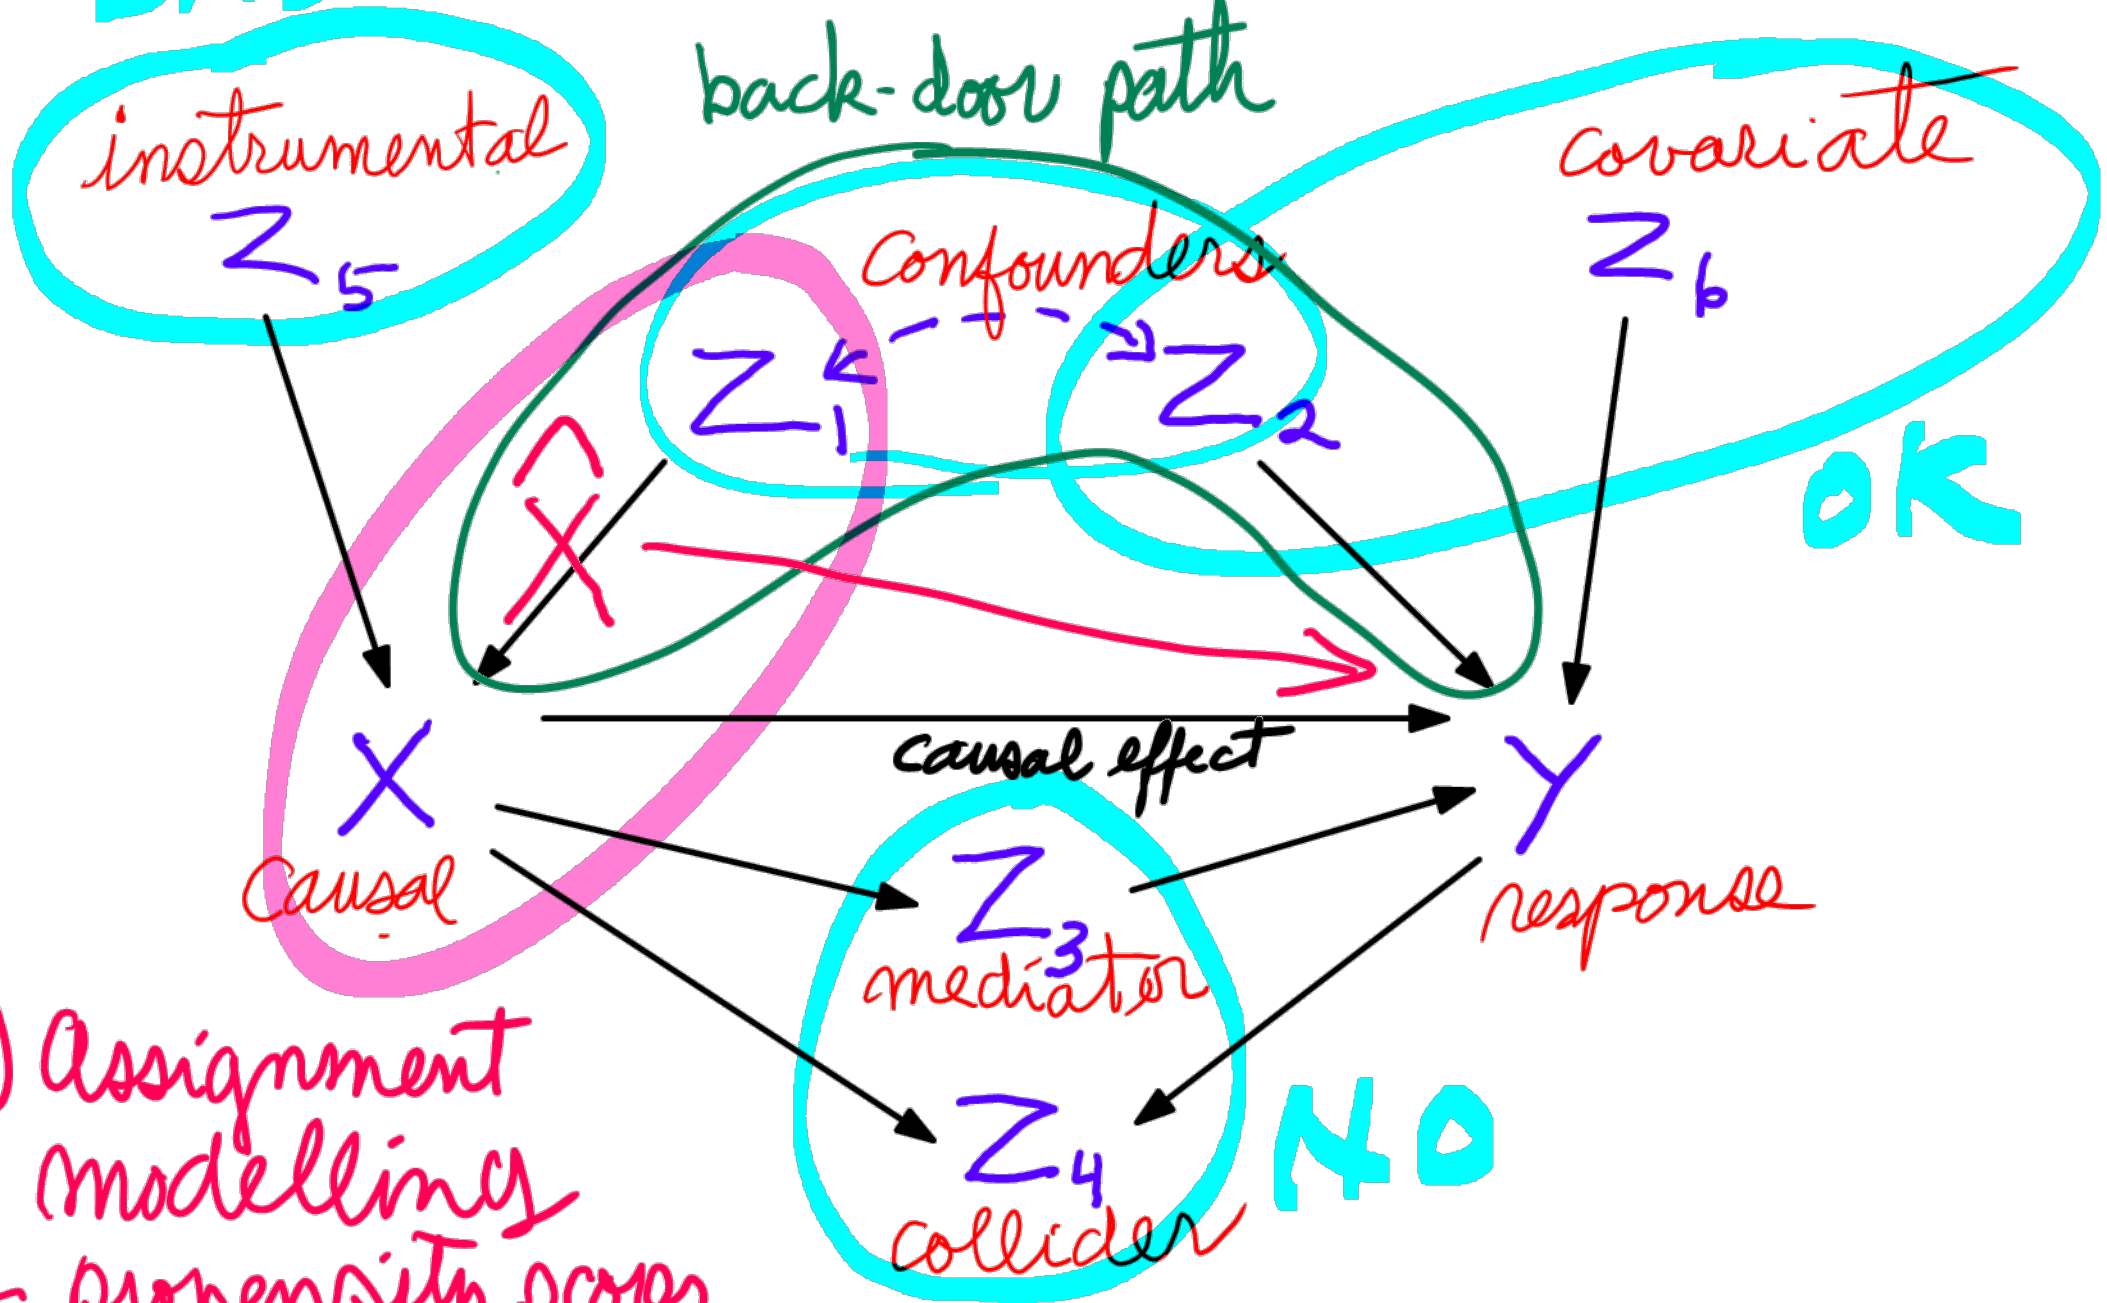 back-door path
instrumental
Z5
covariate
Z6
confounders
Z1
Z2
OK
X̂
causal effect
X
causal
Y
response
Z3
mediator
Z4
collider
NO
) Assignment
modelling
- propensity scores